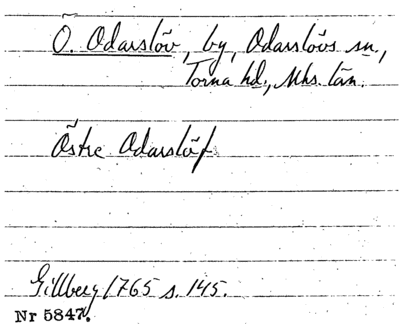 Ö. Odarslöv, by, Odarslövs sn,
Torna hd., Mhs. län.
Östre Odarslöf
Gillberg 1765 s. 145.
Nr 5847.